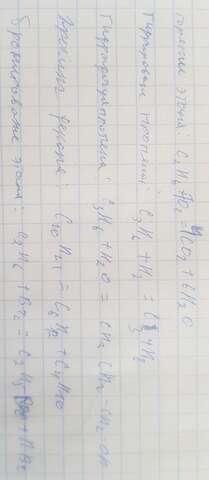 горение этана: C2H6+O2=4CO2+6H2O
Гидрирование пропина: C3H6+H2=C3H2
Гидратация пропена: C3H6+H2O=CH2CH2-CH2-OH
Крекинг декана: C10H21=C6H12+C4H10
Бромирование этана: C2H6+Br2=C2H5Br+HBr